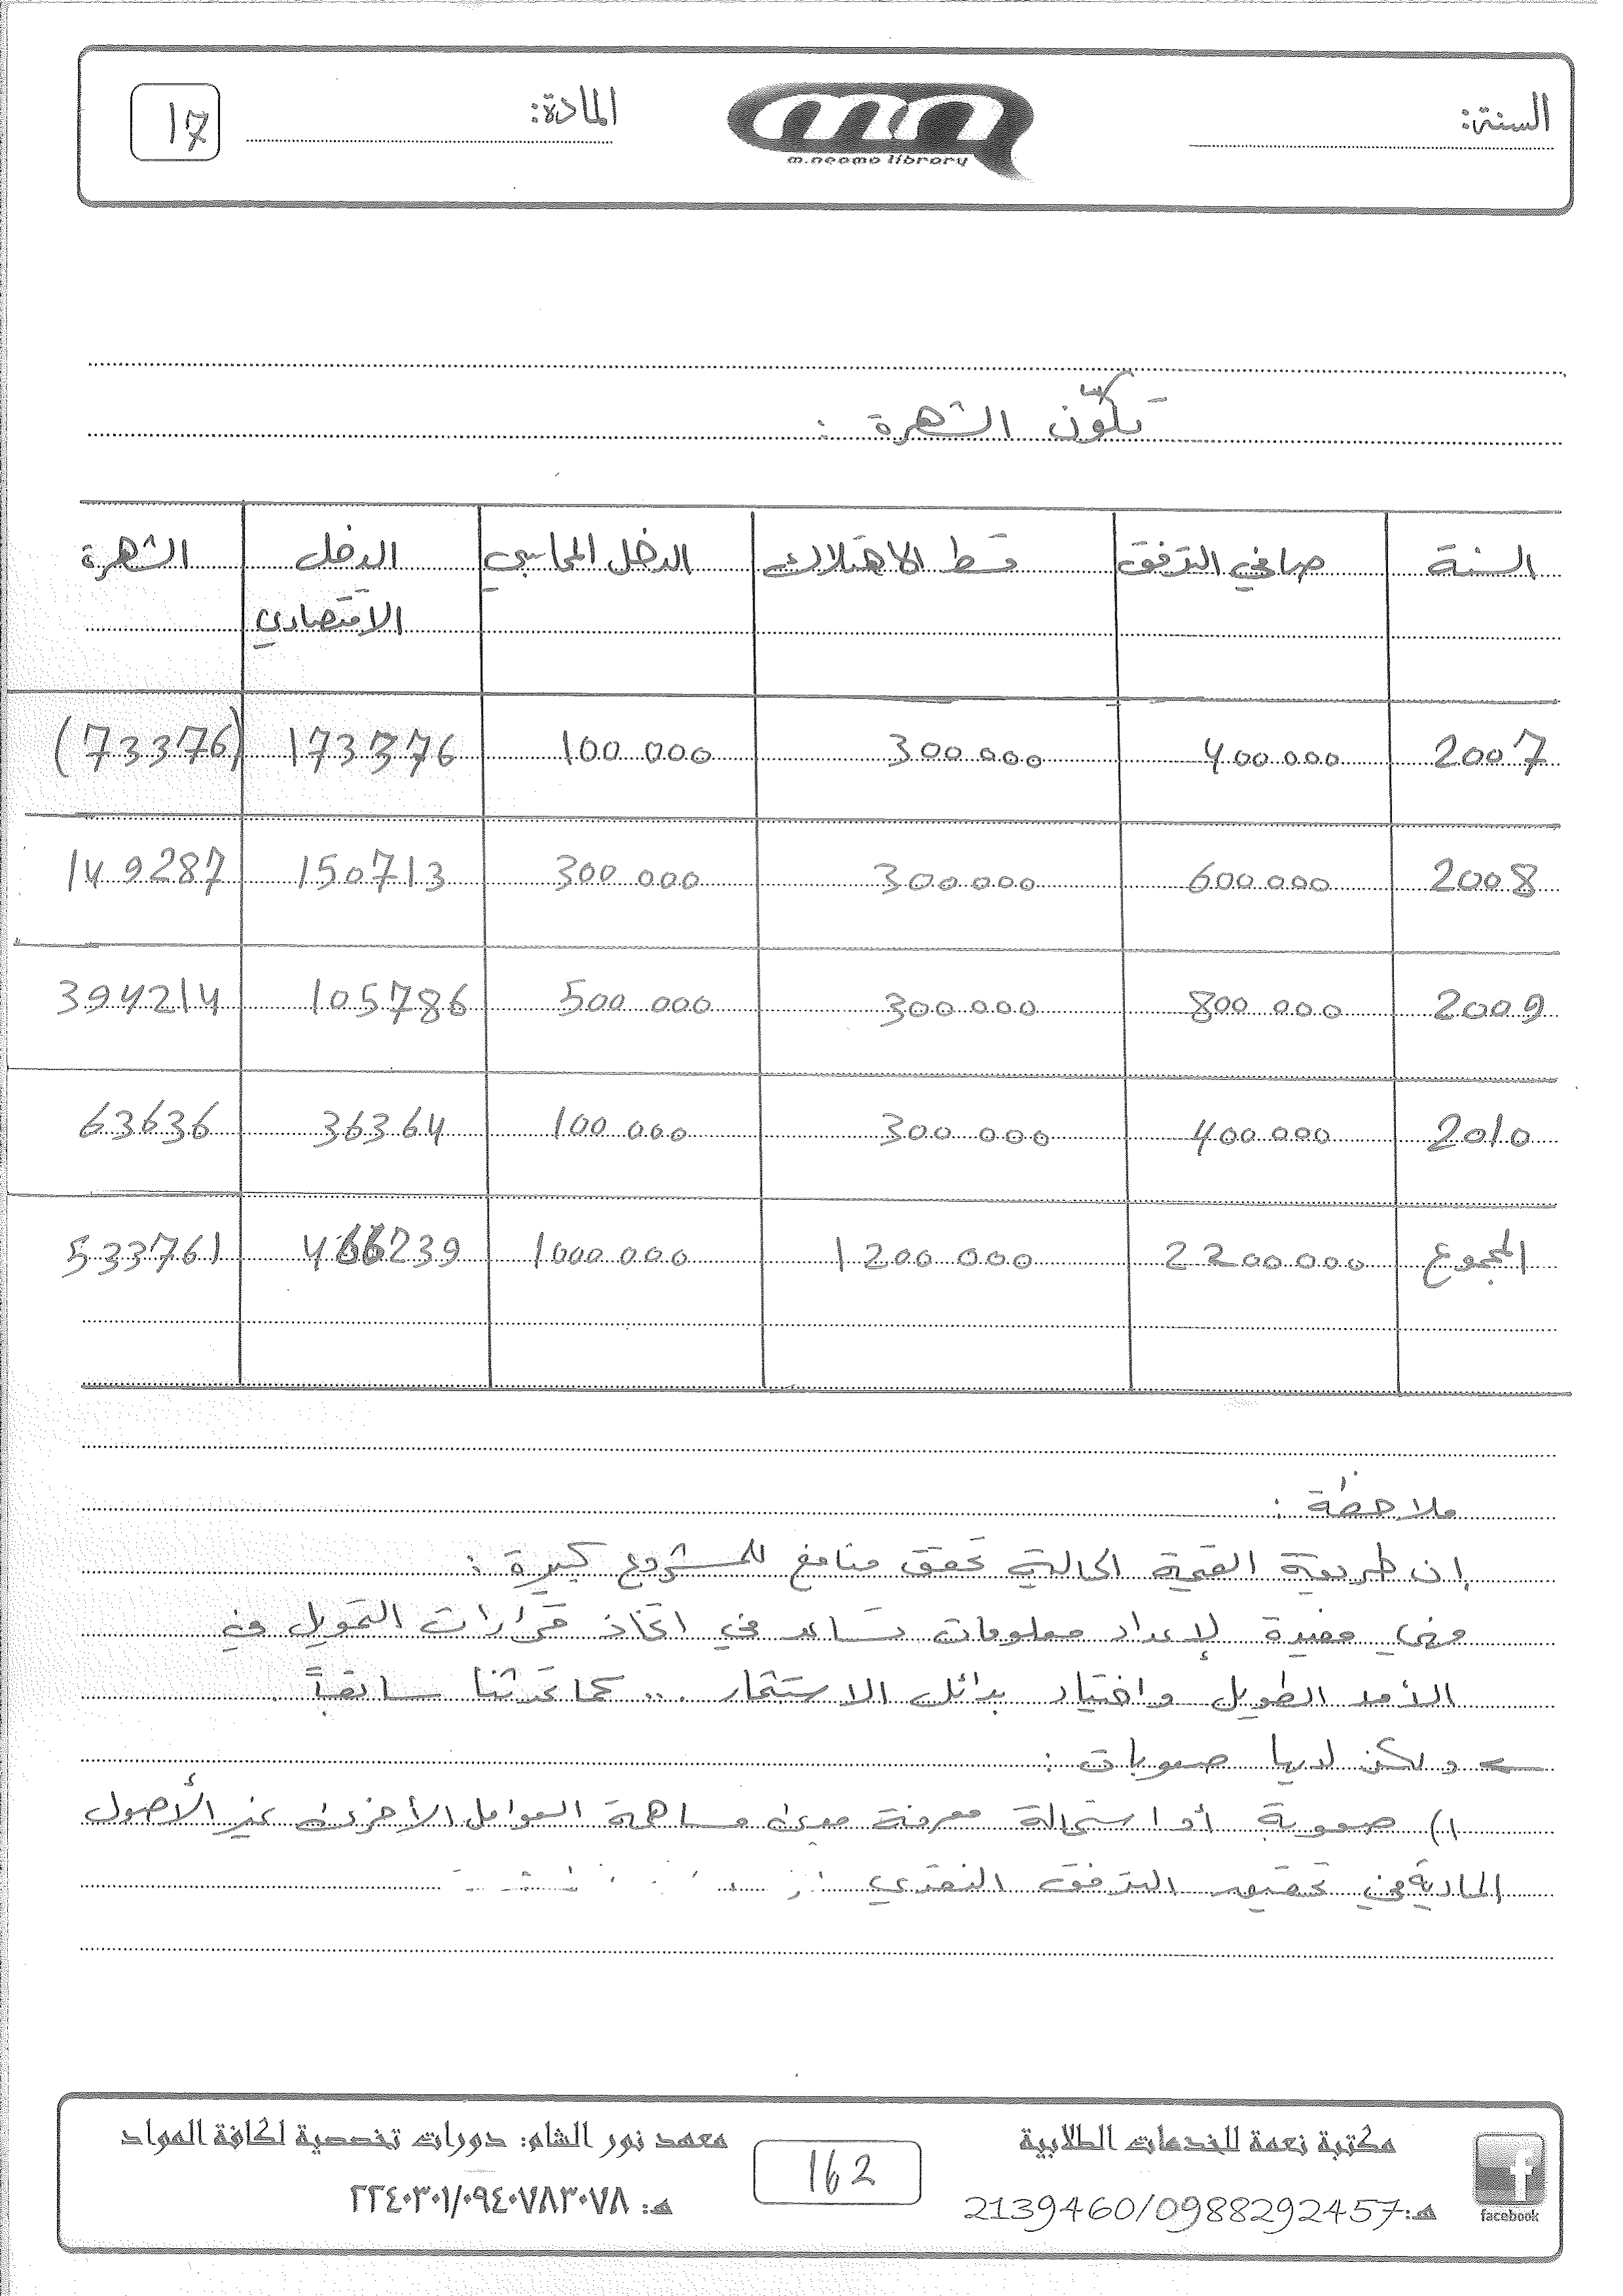 السنة:
m.neama library
المادة:
17
تكوّن الشهرة :
السنة | صافي التدفق | قسط الاهتلاك | الدخل المحاسبي | الدخل الاقتصادي | الشهرة
2007 | 400 000 | 300 000 | 100 000 | 173376 | (73376)
2008 | 600 000 | 300 000 | 300 000 | 150713 | 149287
2009 | 800 000 | 300 000 | 500 000 | 105786 | 394214
2010 | 400 000 | 300 000 | 100 000 | 36364 | 63636
المجموع | 2200 000 | 1200 000 | 1000 000 | 466239 | 533761
ملاحظة :
إن طريقة القيمة الحالية تحقق منافع للمشروع كبيرة :
وهي مفيدة لإعداد معلومات تساعد في اتخاذ قرارات التمويل في
الأمد الطويل واختيار بدائل الاستثمار .. كما تحدثنا سابقاً .
← ولكن لديها صعوبات :
1) صعوبة أو استحالة معرفة مدى مساهمة العوامل الأخرى غير الأصول
المادية في تحقيق التدفق النقدي
مكتبة نعمة للخدمات الطلابية
هـ:2139460/0988292457
facebook
162
معهد نور الشام: دورات تخصصية لكافة المواد
هـ: ٢٢٤٠٣٠١/٠٩٤٠٧٨٣٠٧٨